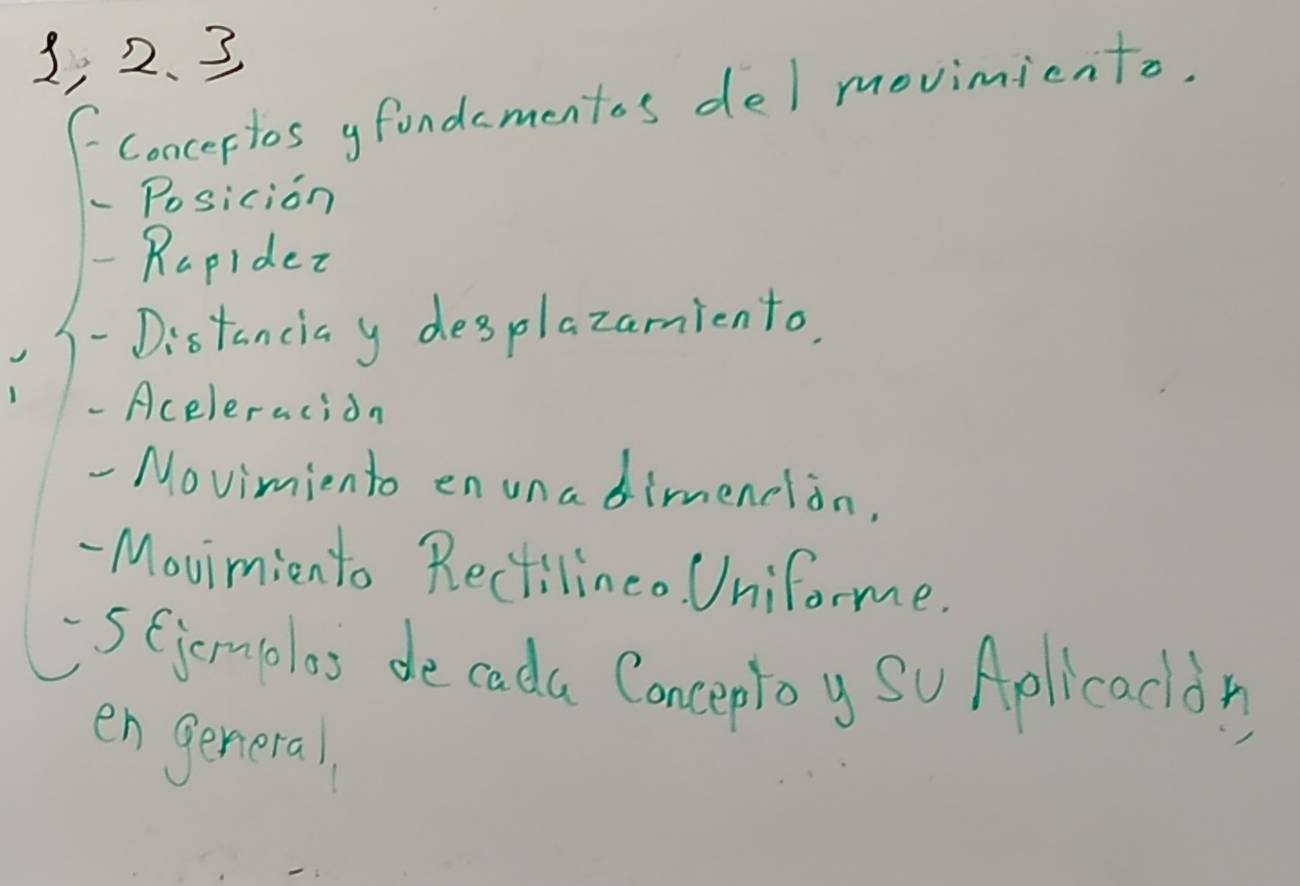 1, 2. 3,
- Conceptos y fundamentos del movimiento.
- Posición
- Rapidez
- Distancia y desplazamiento.
- Aceleración
- Movimiento en una dimención.
- Movimiento Rectilineo Uniforme.
- 5 Ejemplos de cada Concepto y su Aplicación,
en general,